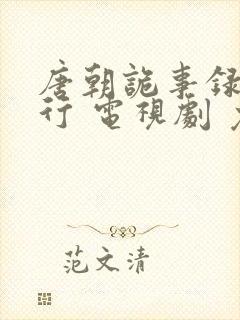 唐朝詭事录
行 電視劇
范文清